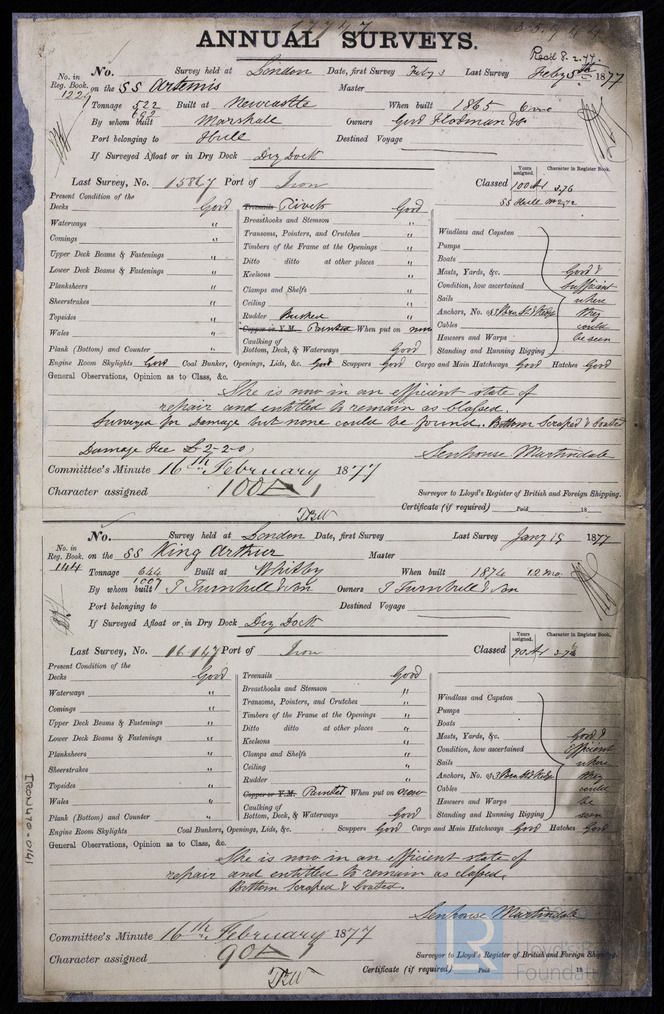 17747
ANNUAL SURVEYS.
Recd 8.2.77.
No. in Reg. Book. 1229 No. Survey held at London Date, first Survey Feby 3 Last Survey Feby 5th 1877
on the SS Artemis Master
Tonnage 522 Built at Newcastle When built 1865 6mo
692
By whom built Marshall Owners
Port belonging to Hull Destined Voyage
If Surveyed Afloat or in Dry Dock Dry Dock
Last Survey, No. 15867 Port of Iron Classed 100A1 3.76
Years assigned. Character in Register Book.
SS Hull
Present Condition of the
Decks Good Treenails Rivets Good
Waterways " Breasthooks and Stemson " Windlass and Capstan
Comings " Transoms, Pointers, and Crutches " Pumps
Upper Deck Beams & Fastenings " Timbers of the Frame at the Openings " Boats
Lower Deck Beams & Fastenings " Ditto ditto at other places " Masts, Yards, &c. Good &
Planksheers " Keelsons " Condition, how ascertained Sufficient
Sheerstrakes " Clamps and Shelfs " Sails where
Topsides " Ceiling " Anchors, No. of they
Wales " Rudder Bushed " Cables could
Plank (Bottom) and Counter " Copper or Y.M. Painted When put on now Hawsers and Warps be seen
Caulking of Bottom, Deck, & Waterways Good Standing and Running Rigging
Engine Room Skylights Good Coal Bunker, Openings, Lids, &c. Good Scuppers Good Cargo and Main Hatchways Good Hatches Good
General Observations, Opinion as to Class, &c.
She is now in an efficient state of
repair and entitled to remain as Classed.
Surveyed for Damage but none could be found. Bottom Scraped & Coated
Damage Fee £2-2-0, Senhouse Martindale
Committee's Minute 16th February 1877
Character assigned 100A1 Surveyor to Lloyd's Register of British and Foreign Shipping.
Certificate (if required) Paid 18
No. in Reg. Book. 144 No. Survey held at London Date, first Survey Last Survey Jany 15 1877
on the SS King Arthur Master
Tonnage 644 Built at Whitby When built 1874 12 mo.
1007
By whom built T Turnbull & Son Owners T Turnbull & Son
Port belonging to Destined Voyage
If Surveyed Afloat or in Dry Dock Dry Dock
Last Survey, No. 16147 Port of Iron Classed 90A1
Years assigned. Character in Register Book.
Present Condition of the
Decks Good Treenails Good
Waterways " Breasthooks and Stemson " Windlass and Capstan
Comings " Transoms, Pointers, and Crutches " Pumps
Upper Deck Beams & Fastenings " Timbers of the Frame at the Openings " Boats
Lower Deck Beams & Fastenings " Ditto ditto at other places " Masts, Yards, &c. Good &
Planksheers " Keelsons " Condition, how ascertained Efficient
Sheerstrakes " Clamps and Shelfs " Sails where
Topsides " Ceiling " Anchors, No. of they
Wales " Rudder " Cables could
Plank (Bottom) and Counter " Copper or Y.M. Painted When put on now Hawsers and Warps be
Caulking of Bottom, Deck, & Waterways Good Standing and Running Rigging seen
Engine Room Skylights Coal Bunkers, Openings, Lids, &c. Scuppers Good Cargo and Main Hatchways Good Hatches Good
General Observations, Opinion as to Class, &c.
She is now in an efficient state of
repair and entitled to remain as classed.
Bottom Scraped & Coated.
Senhouse Martindale
Committee's Minute 16th February 1877
Character assigned 90A Surveyor to Lloyd's Register of British and Foreign Shipping.
Certificate (if required) Paid 18
IRON470-0141
LR
Foundation